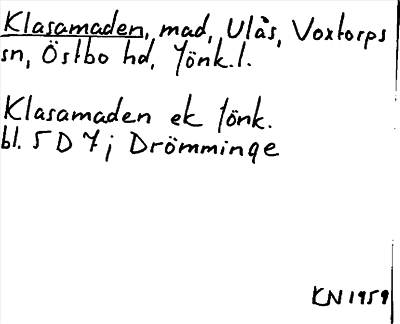 Klasamaden, mad, Ulås, Voxtorps
sn, Östbo hd, Jönk.l.
Klasamaden ek Jönk.
bl. 5 D 7 j Drömminge
KN 1959